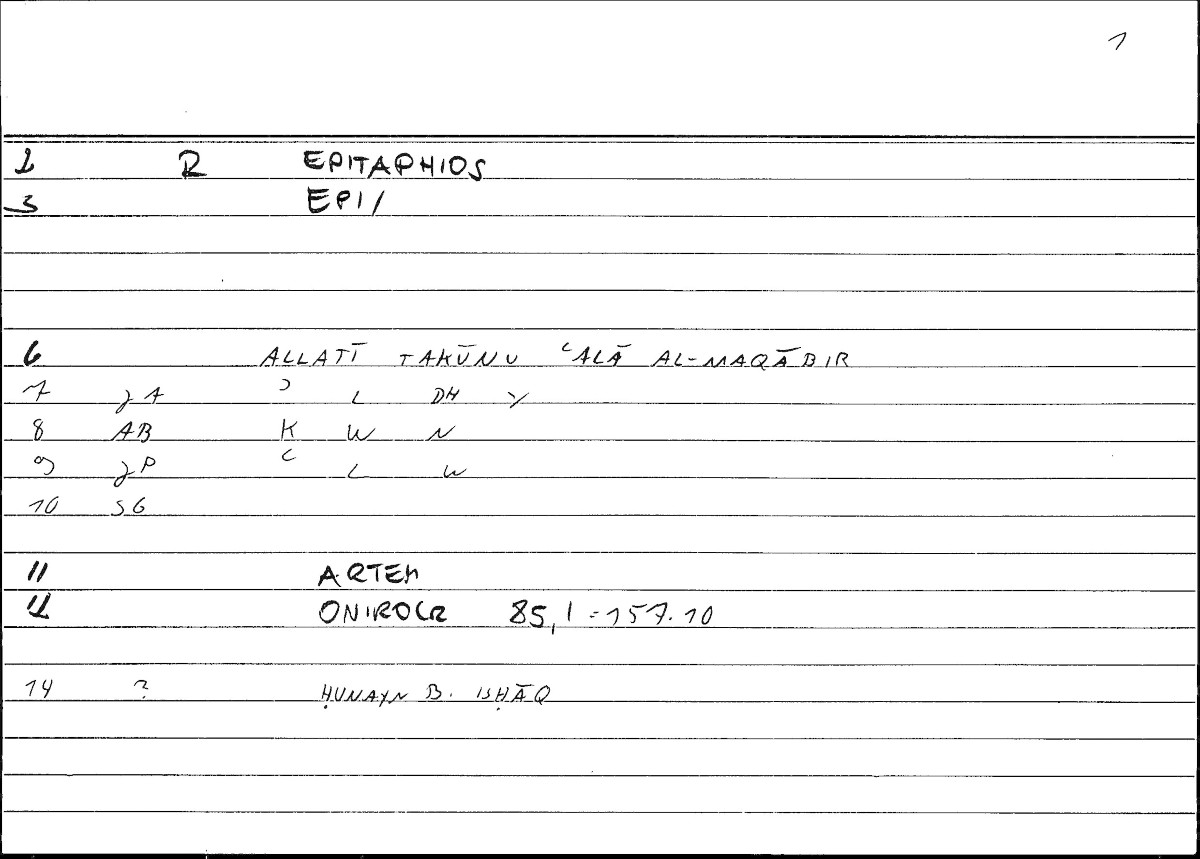 1
2 R EPITAPHIOS
3 EPI/
6 ALLATĪ TAKŪNU ʿALĀ AL-MAQĀBIR
7 JA ʾ L DH Y
8 AB K W N
9 JP ʿ L W
10 SG
11 ARTEM
12 ONIROCR 85,1 = 157.10
14 ? ḤUNAYN B. ISḤĀQ